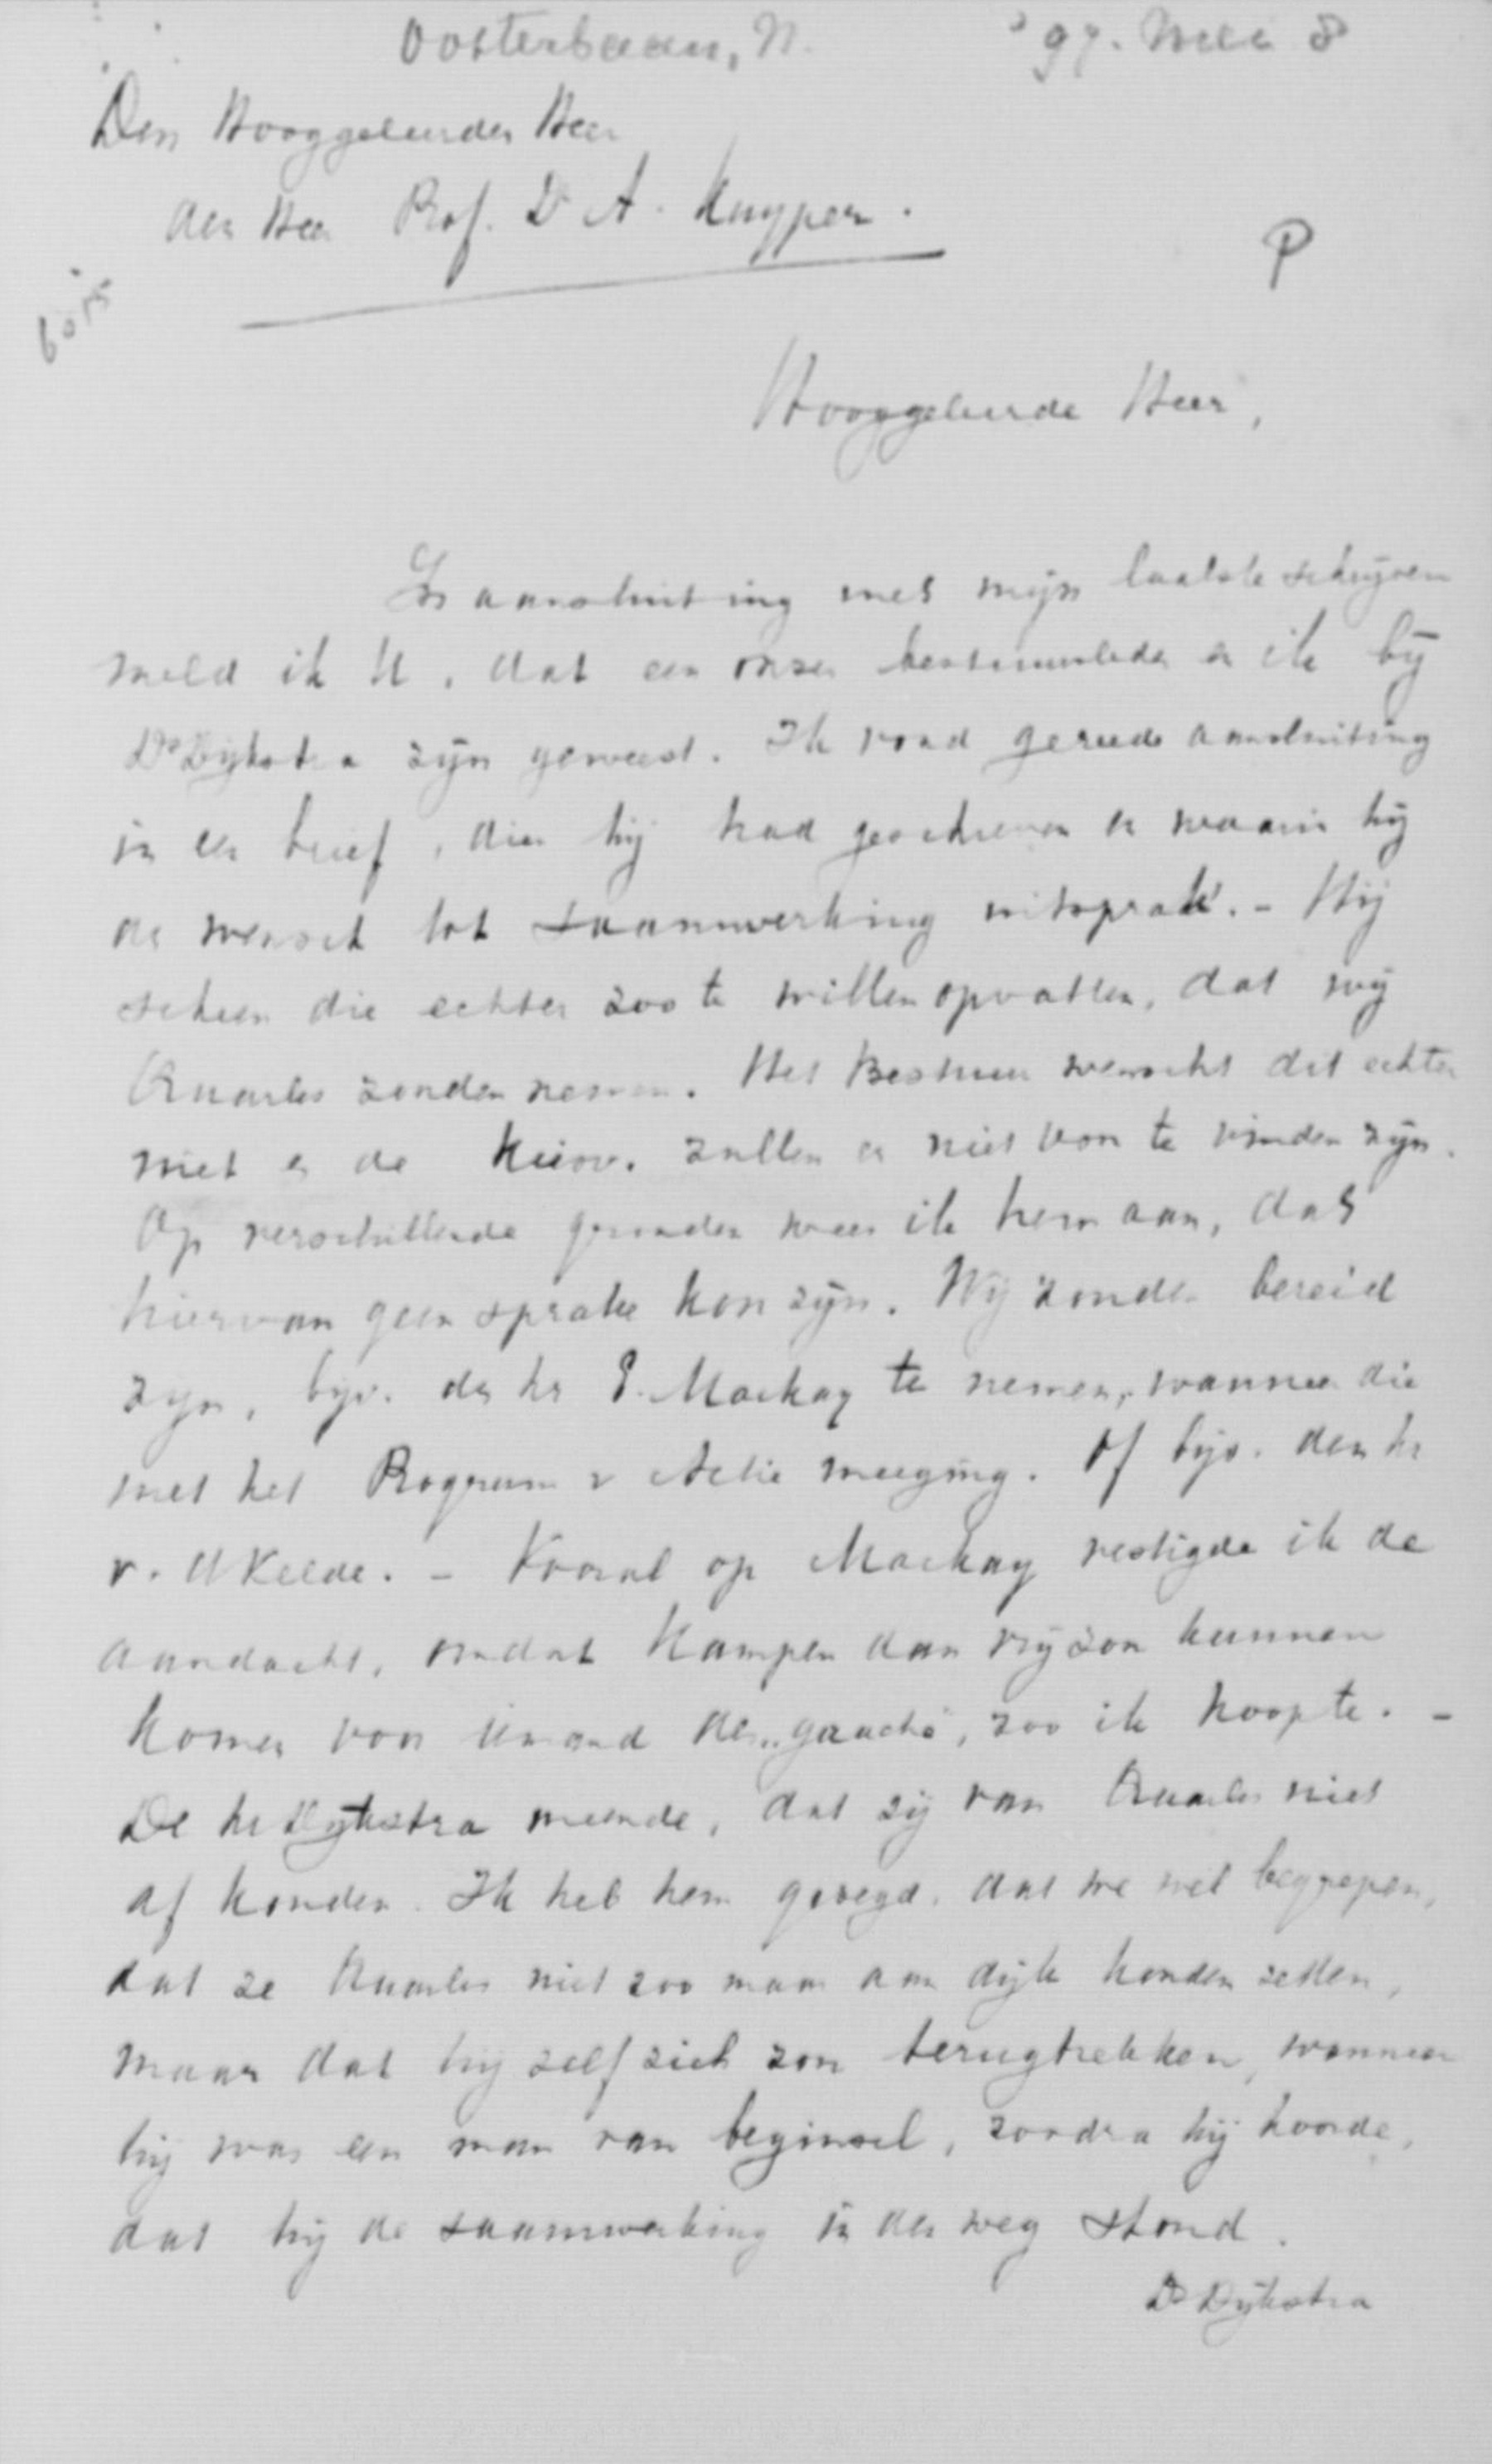 Oosterbaan, N. '97. Mei 8
Den Hooggeleerden Heer
den Heer Prof. Dr A. Kuyper.
P
6015
Hooggeleerde Heer,
In aansluiting met mijn laatste schrijven
meld ik U, dat een onzer bestuursleden en ik bij
Ds Dijkstra zijn geweest. Ik vond gereede aansluiting
in een brief, dien hij had geschreven en waarin hij
de wensch tot saamwerking uitsprak. - Hij
scheen die echter zoo te willen opvatten, dat wij
Quarles zouden nemen. Het Bestuur wenscht dit echter
niet en de kiesv. zullen er niet voor te vinden zijn.
Op verschillende gronden wees ik hem aan, dat
hiervan geen sprake kon zijn. Wij zouden bereid
zijn, bijv. den hr Mackay te nemen, wanneer die
met het Program v Actie meeging. Of bijv. den hr
v. Alkelde. - Vooral op Mackay vestigde ik de
aandacht, omdat Kampen dan vrij zou kunnen
komen voor iemand der "gauche", zoo ik hoopte. -
De hr Dijkstra meende, dat zij van Quarles niet
af konden. Ik heb hem gezegd, dat we wel begrepen,
dat ze Quarles niet zoo maar aan dijk konden zetten,
maar dat hij zelf zich zou terugtrekken, wanneer
hij was een man van beginsel, zoodra hij hoorde,
dat hij de saamwerking in den weg stond.
Ds Dijkstra